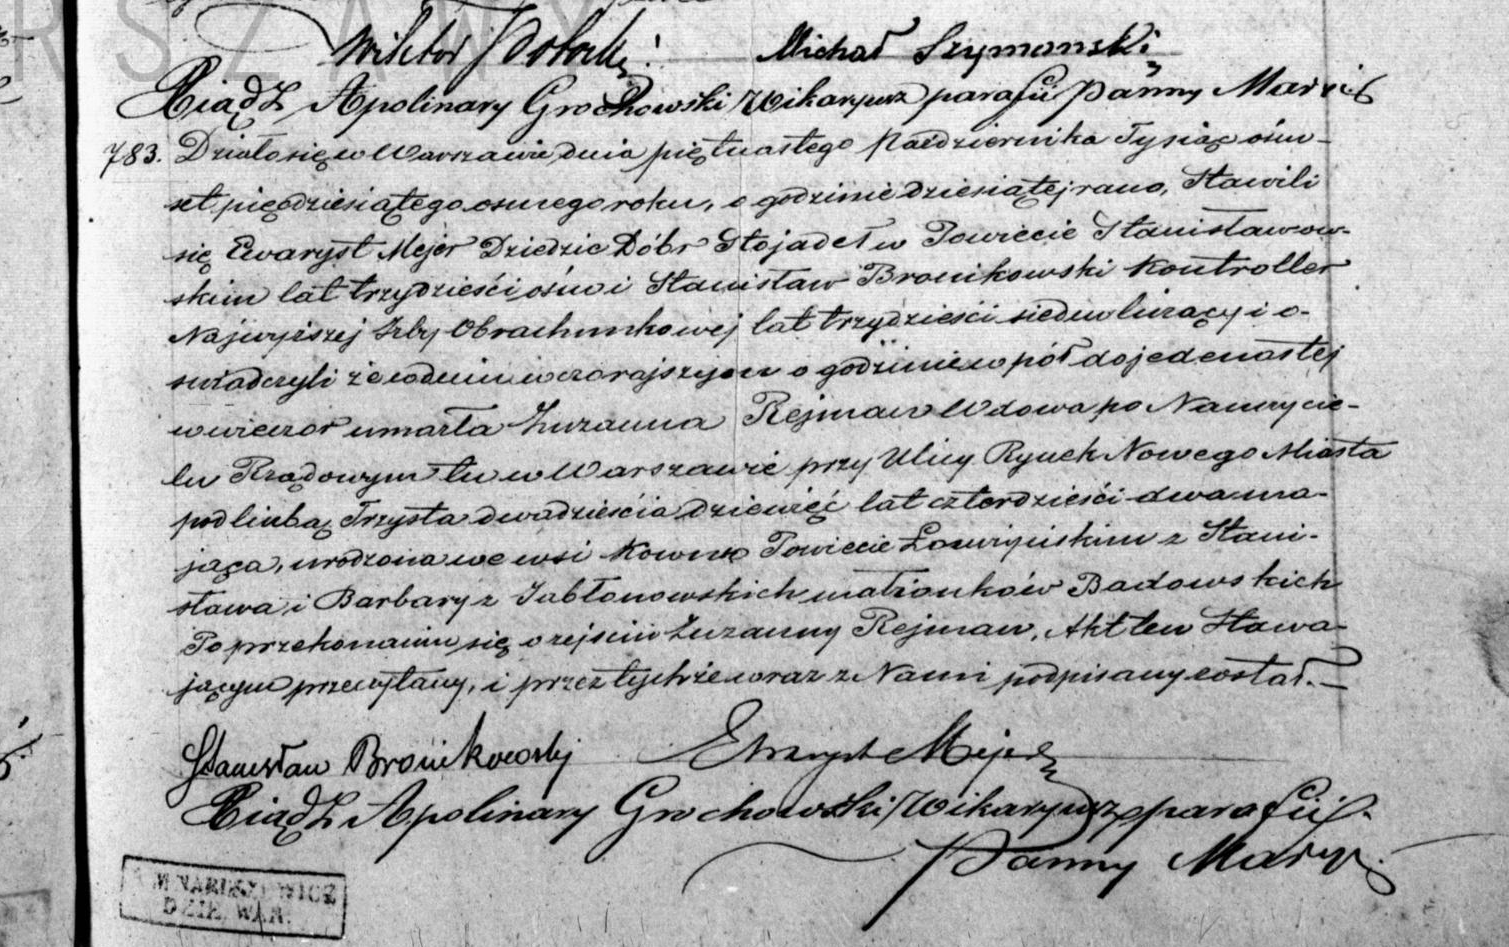 RSZAWY
Wiktor Potocki Michał Szymanski
Xiądz Apolinary Grochowski Wikaryusz parafii Panny Maryi
783. Działo się w Warszawie dnia piętnastego Października Tysiąc ośm-
set pięćdziesiątego osmego roku, o godzinie dziesiątej rano, Stawili
się Ewaryst Mejer Dziedzic Dóbr Stojadeł w Powiecie Stanisławow-
skim lat trzydzieści ośm i Stanisław Bronikowski Kontroller
Najwyższej Izby Obrachunkowej lat trzydzieści siedm liczący i o-
swiadczyli że w dniu wczorajszym o godzinie w pół do jedenastej
w wieczór umarła Zuzanna Rejman Wdowa po Nauczycie-
lu Rządowym tu w Warszawie przy Ulicy Rynek Nowego Miasta
pod liczbą Trzysta dwadzieścia dziewięć lat czterdzieści dwa ma-
jąca, urodzona we wsi Powiecie Łowickim z Stani-
sława i Barbary z Jabłonowskich małżonków Badowskich
Po przekonaniu się o zejściu Zuzanny Rejman, Akt ten Stawa-
jącym przeczytany, i przez tychże wraz z Nami podpisany został. —
Stanisław Bronikowski Ewaryst Mejer
Xiądz Apolinary Grochowski Wikaryusz parafii
Panny Maryi
DZIE. WAR.